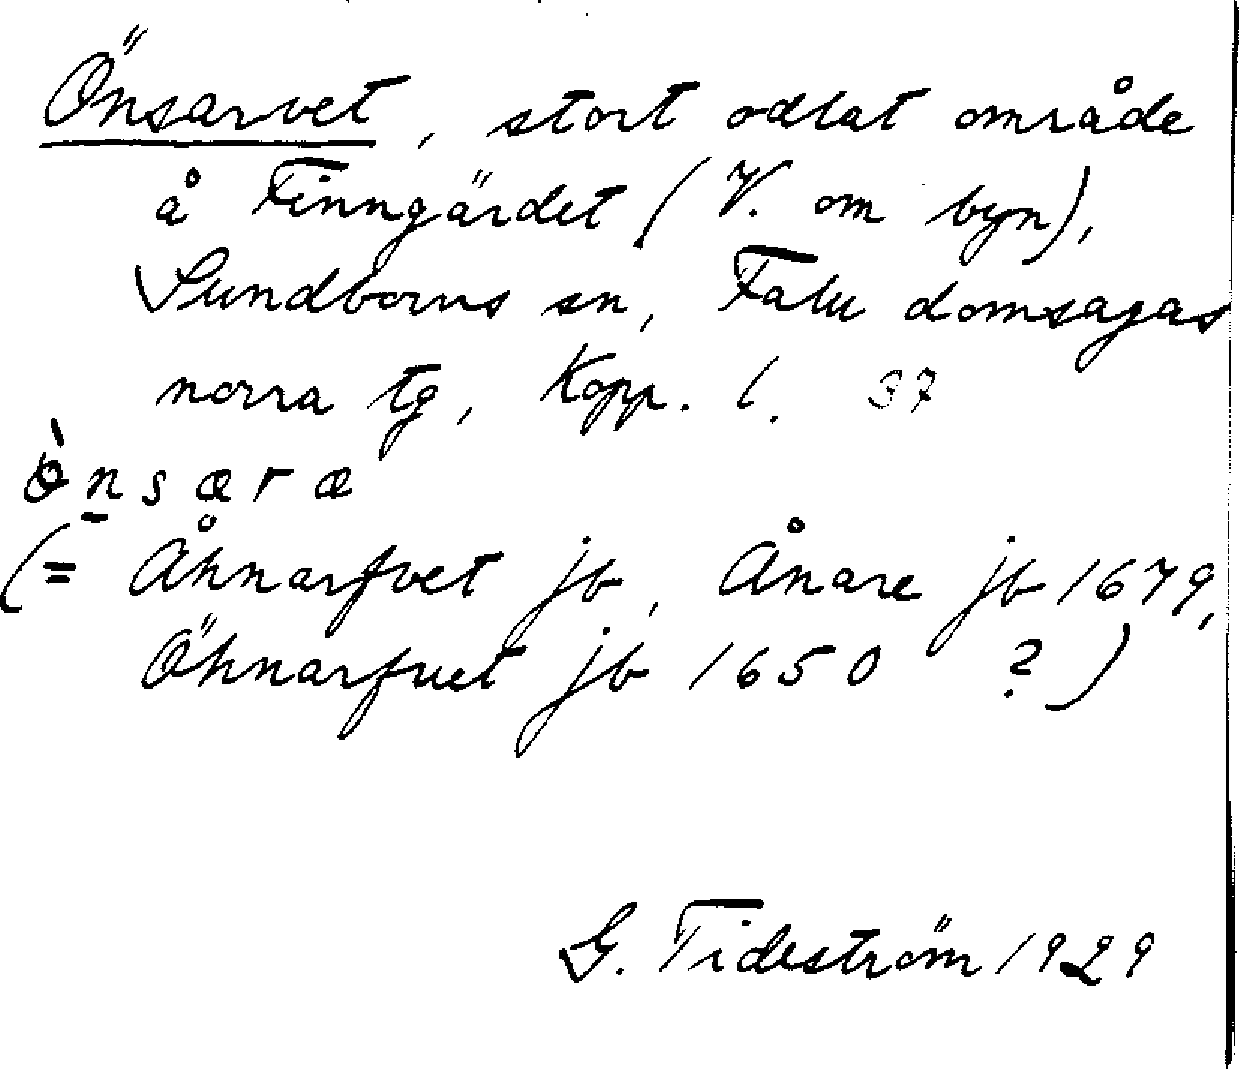 Önsarvet, stort odlat område
å Finngärdet (V. om byn),
Sundborns sn, Falu domsagas
norra tg, Kopp. l. 37
ò̱nsæræ
(= Åhnarfvet jb, Ånare jb 1679,
Öhnarfuet jb 1650 ?)
G. Tideström 1929